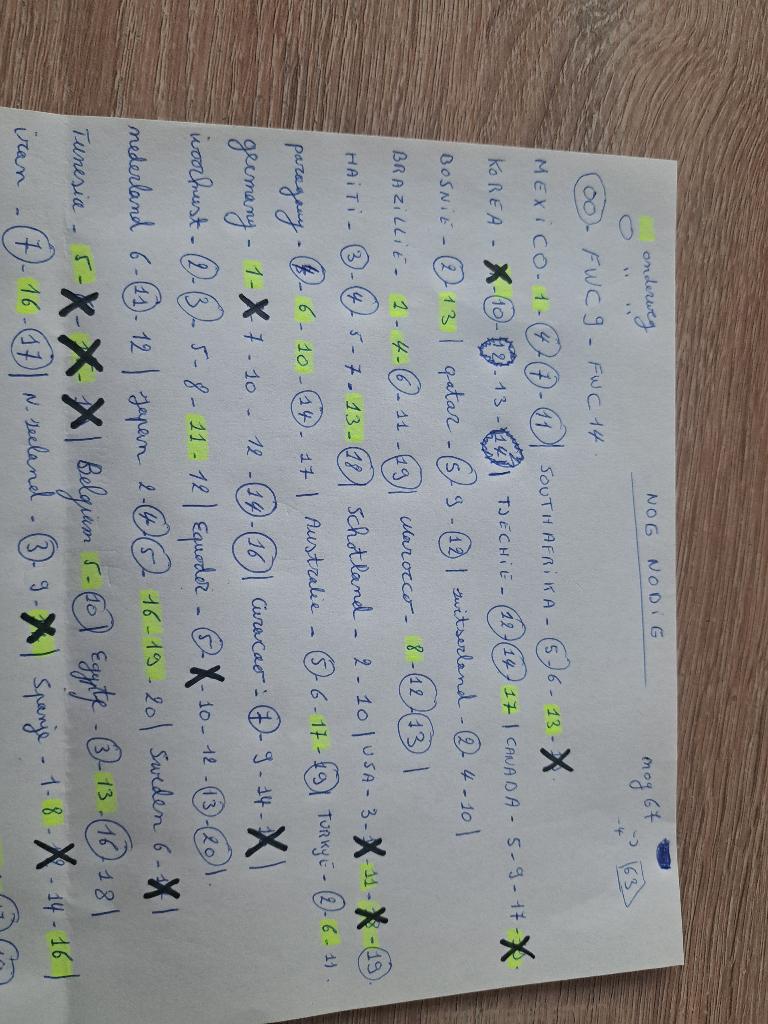 NOG NODIG
onderweg
O " "
mog 67 → 63
-4
00 - FWC9 - FWC14.
MEXICO - 1 - 4 - 7 - 11 | SOUTH AFRIKA - 5 - 6 - 13 -
KOREA - 10 - 12 - 13 - 14 | TSJECHIË - 12 - 14 - 17 | CANADA - 5 - 9 - 17 -
BOSNIË - 2 - 13 | qatar - 5 - 9 - 12 | zwitserland - 2 - 4 - 10 |
BRAZILLIË - 1 - 4 - 6 - 11 - 19 | Marocco - 8 - 12 - 13 |
HAÏTI - 3 - 4 - 5 - 7 - 13 - 18 | Schotland - 2 - 10 | USA - 3 - - 11 - 18 - 19.
paraguay - - 6 - 10 - 14 - 17 | Australie - 5 - 6 - 17 - 19 | TURKYË - 2 - 6 - 11.
germany - 1 - - 7 - 10 - 12 - 14 - 16 | Curacao : 7 - 9 - 14 - |
ivoorkust - 2 - 3 - 5 - 8 - 11 - 12 | Equador - 5 - - 10 - 12 - 13 - 20 |.
nederland 6 - 11 - 12 | Japan 2 - 4 - 5 - 16 - 19 - 20 | Sweden 6 - |
Tunesia - 5 - - - | Belgium 5 - 10 | Egypte - 3 - 13 - 16 18 |
iran - 7 - 16 - 17 | N. Zeeland - 3 - 9 - | Spanje - 1 - 8 - - 14 - 16 |